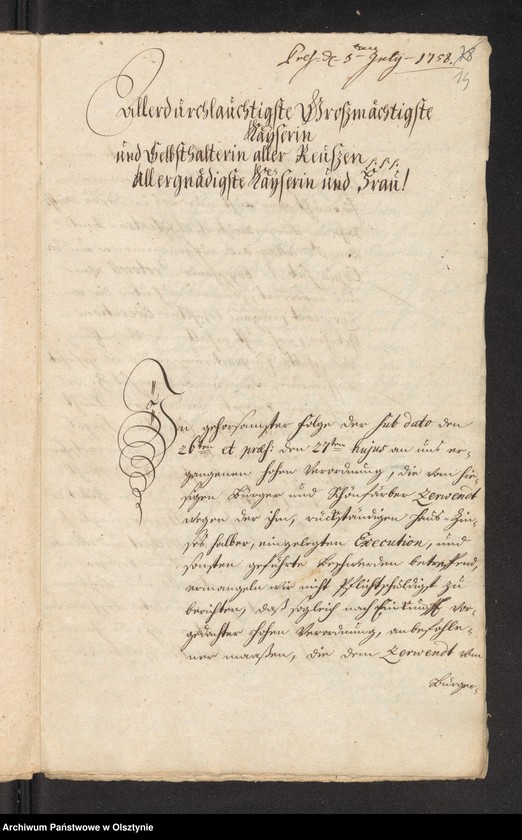 Præs. d. 5ten July 1758.
19
Allerdurchlauchtigste Großmächtigste
Kayserin
und Selbsthalterin aller Reußen /:/:/:
Allergnädigste Kayserin und Frau!
In gehorsamster Folge der sub dato den
26ten et præs: den 27ten hujus an uns er-
gangenen hohen Verordnung, die vom hie-
sigen Bürger und Schönfärber Lerwendt
wegen der ihm, rückständigen Hauß-Zin-
ses halber, eingelegten Execution, und
sonsten geführte Beschwerden betreffend,
ermangeln wir nicht Pflichtschuldigst zu
berichten, daß sogleich nach Einkunfft vor-
gedachter hohen Verordnung, anbefohle-
ner maaßen, die dem Lerwendt vom
Bürger-
Archiwum Państwowe w Olsztynie